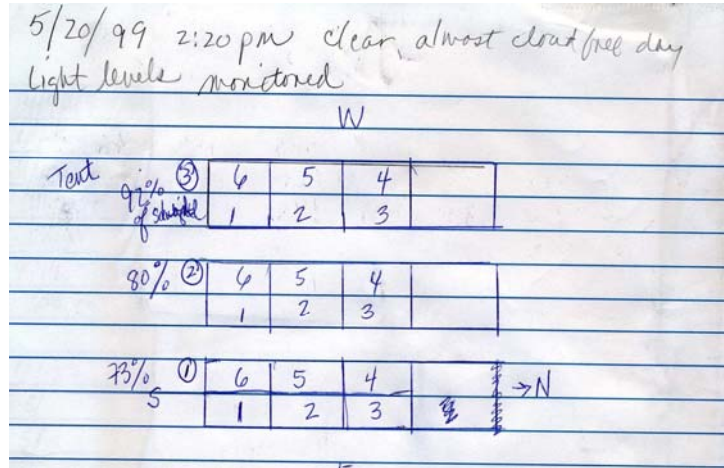 5/20/99 2:20 pm clear, almost cloud free day
light levels monitored
W
Tent
③ 6 5 4
of
1 2 3
80% ② 6 5 4
1 2 3
73% ① 6 5 4
→N
S 1 2 3